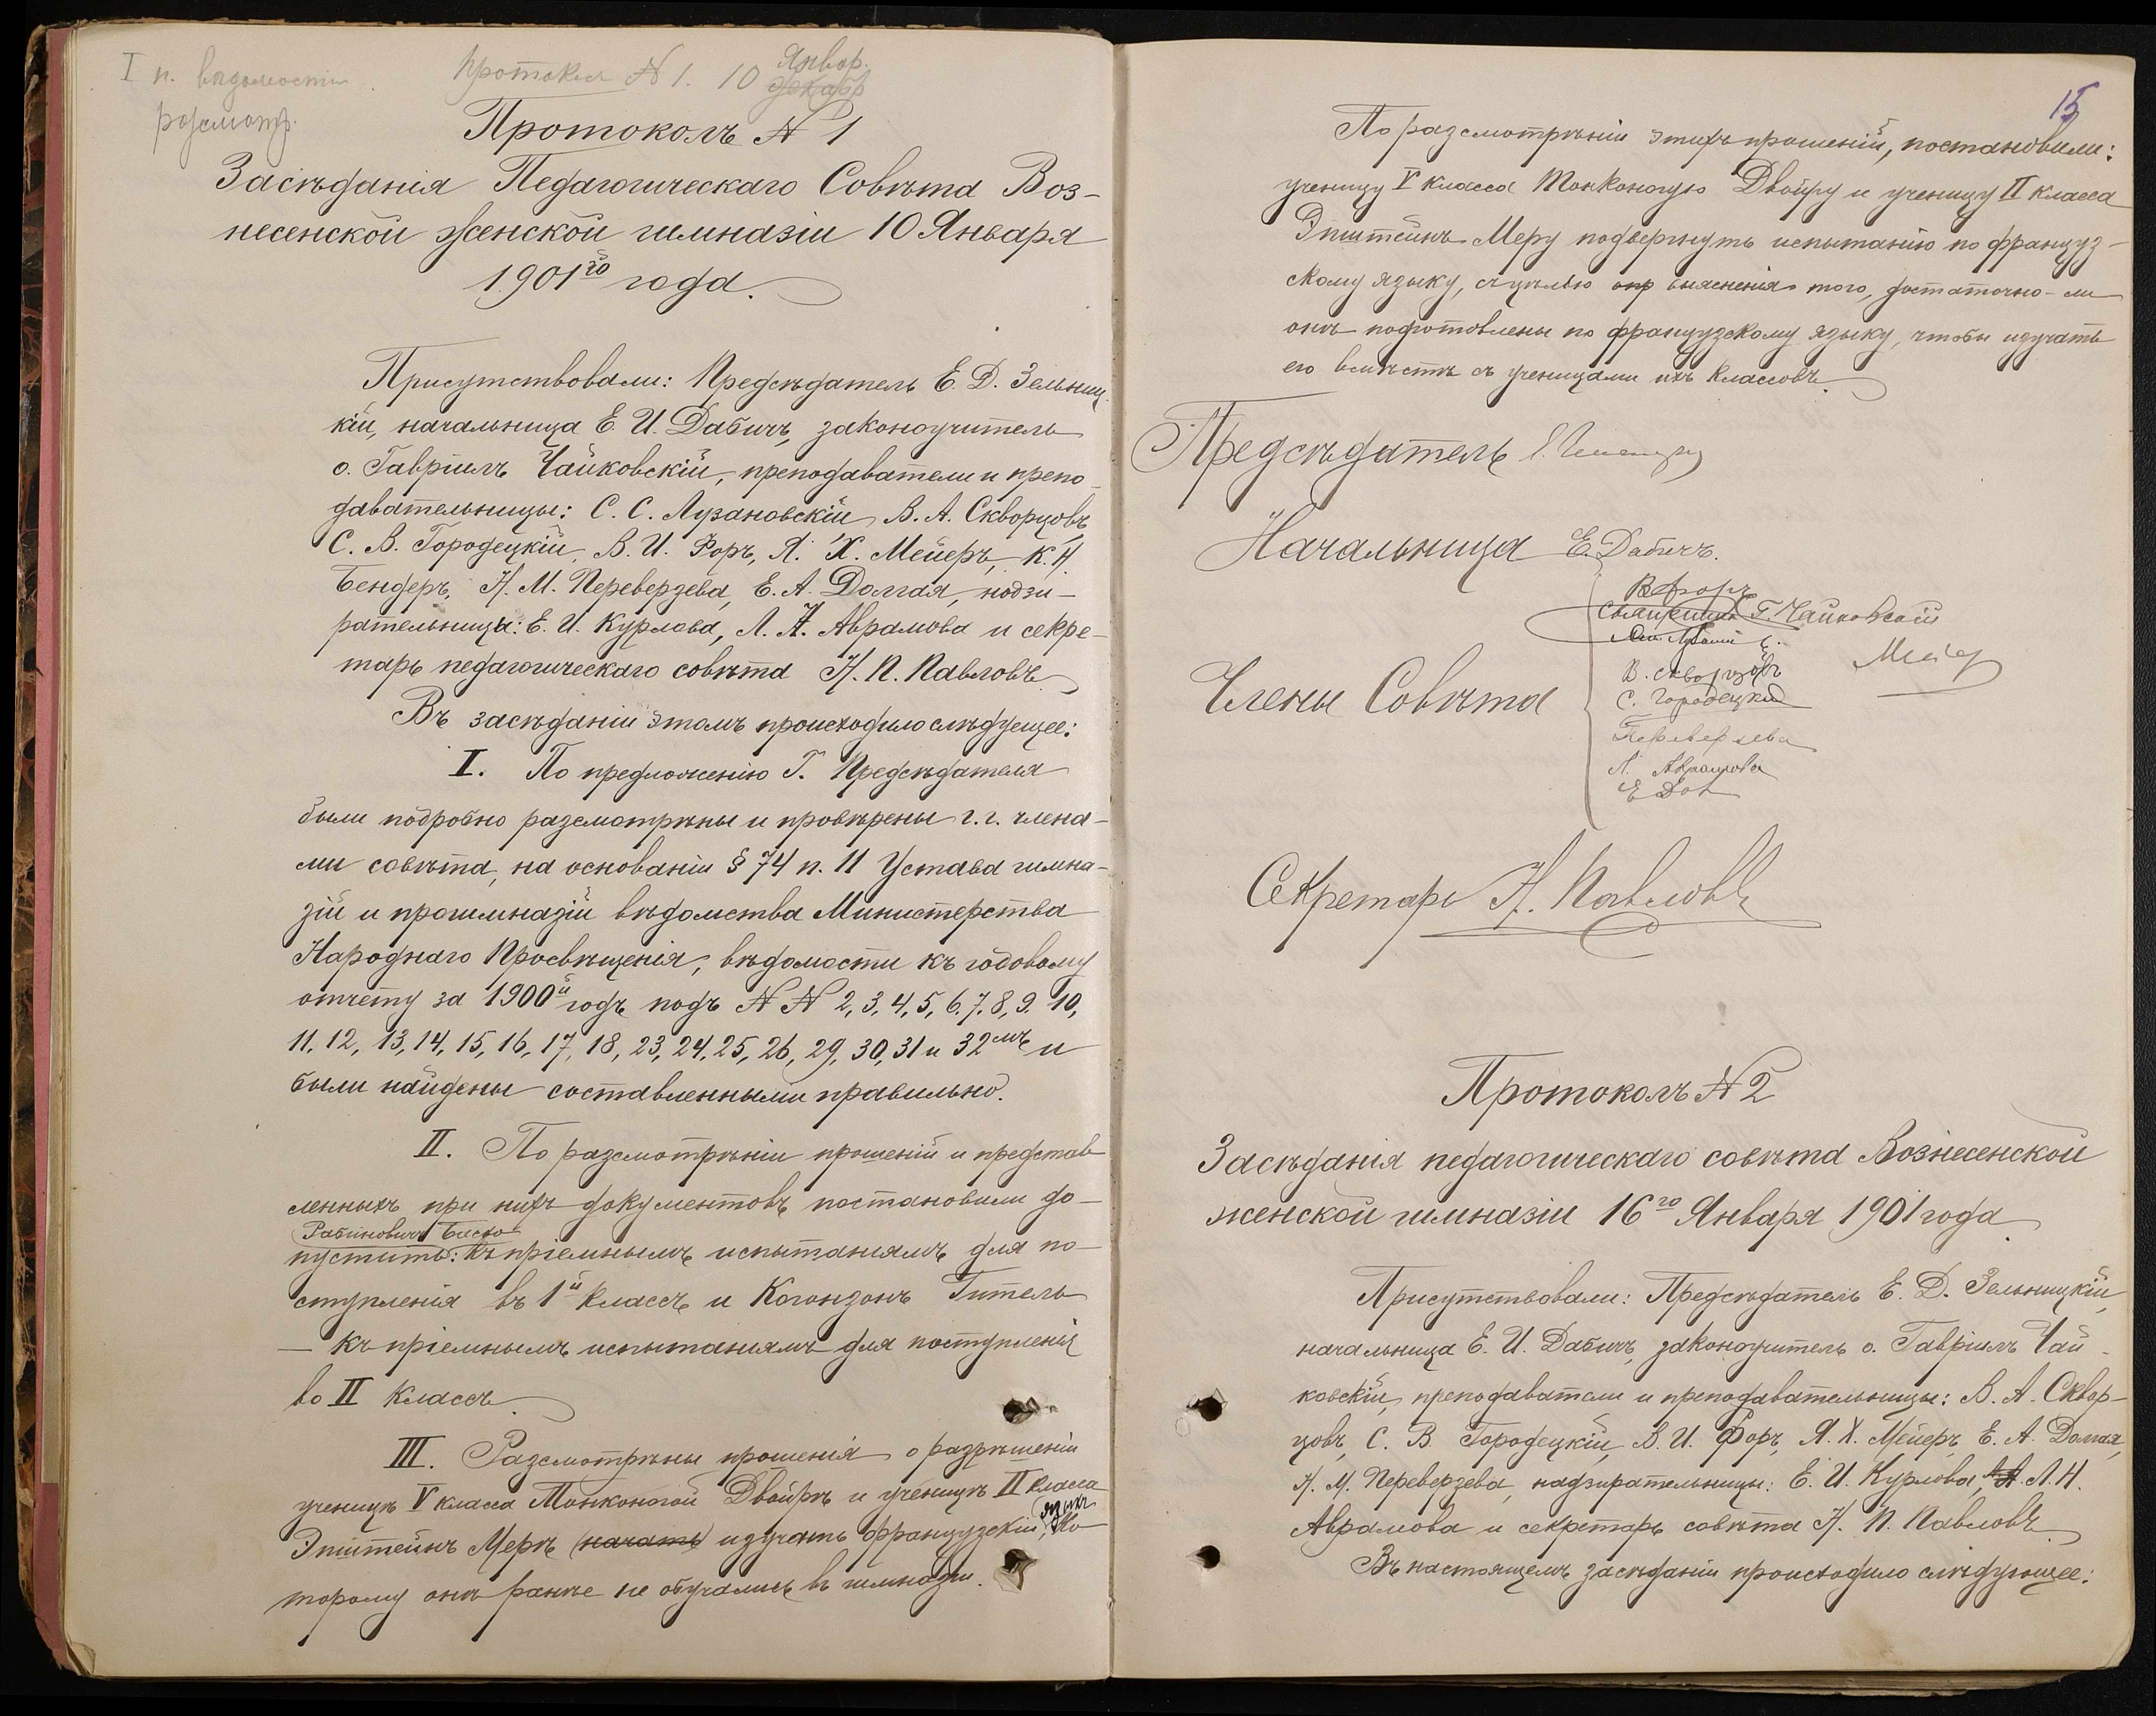 I п. ведомости
разсмотр.
Протокол N 1. 10 Январ.
Протоколъ N 1
Засѣданія Педагогическаго Совѣта Воз-
несенской женской гимназіи 10 Января
1901го года.
Присутствовали: Предсѣдатель Е. Д. Зельниц-
кій, начальница Е. И. Дабичъ, законоучитель
о. Гавріилъ Чайковскій, преподаватели и препо-
давательницы: С. С. Лузановскій, В. А. Скворцовъ,
С. В. Городецкій, В. И. Форъ, Я. Х. Мейеръ, К. Н.
Бендеръ, Н. М. Переверзева, Е. А. Долгая, надзи-
рательницы: Е. И. Курлова, Л. Н. Аврамова и секре-
тарь педагогическаго совѣта Н. П. Павловъ.
Въ засѣданіи этомъ происходило слѣдующее:
I. По предложенію Г. Предсѣдателя
были подробно разсмотрѣны и провѣрены г.г. члена-
ми совѣта, на основаніи § 74 п. 11 Устава гимна-
зій и прогимназій вѣдомства Министерства
Народнаго Просвѣщенія, вѣдомости къ годовому
отчету за 1900й годъ подъ N N 2, 3, 4, 5, 6, 7, 8, 9, 10,
11, 12, 13, 14, 15, 16, 17, 18, 23, 24, 25, 26, 29, 30, 31 и 32мъ и
были найдены составленными правильно.
II. По разсмотрѣніи прошеній и представ
ленныхъ при нихъ документовъ постановили до-
Рабиновичъ Басю
пустить: къ пріемнымъ испытаніямъ для по-
ступленія въ 1й классъ и Когонзонъ Гитель
— къ пріемнымъ испытаніямъ для поступленія
во II классъ.
III. Разсмотрѣны прошенія о разрѣшеніи
ученицѣ V класса Тонконогой Двойрѣ и ученицѣ II класса
Эпштейнъ Мерѣ (начать) изучать французскій языкъ, ко-
торому онѣ ранѣе не обучались въ гимназіи.
15
По разсмотрѣніи этихъ прошеній, постановили:
ученицу V класса Тонконогую Двойру и ученицу II класса
Эпштейнъ Меру подвергнуть испытанію по француз-
скому языку, съ цѣлью опр выясненія того, достаточно-ли
онѣ подготовлены по французскому языку, чтобы изучать
его вмѣстѣ съ ученицами ихъ классовъ.
Предсѣдатель
Начальница Е. Дабичъ.
В Форъ
Священникъ Г. Чайковскій
Мейер
В. Скворцовъ
С. Городецкій
Члены Совѣта
Переверзева
Л. Аврамова
Е Дол
Секретарь Н. Павловъ
Протоколъ N 2
Засѣданія педагогическаго совѣта Вознесенской
женской гимназіи 16го Января 1901 года.
Присутствовали: Предсѣдатель Е. Д. Зельницкій,
начальница Е. И. Дабичъ, законоучитель о. Гавріилъ Чай-
ковскій, преподаватели и преподавательницы: В. А. Сквор-
цовъ, С. В. Городецкій, В. И. Форъ, Я. Х. Мейеръ, Е. А. Долгая,
Н. М. Переверзева, надзирательницы: Е. И. Курлова, Л. Н.
Аврамова и секретарь совѣта Н. П. Павловъ.
Въ настоящемъ засѣданіи происходило слѣдующее: